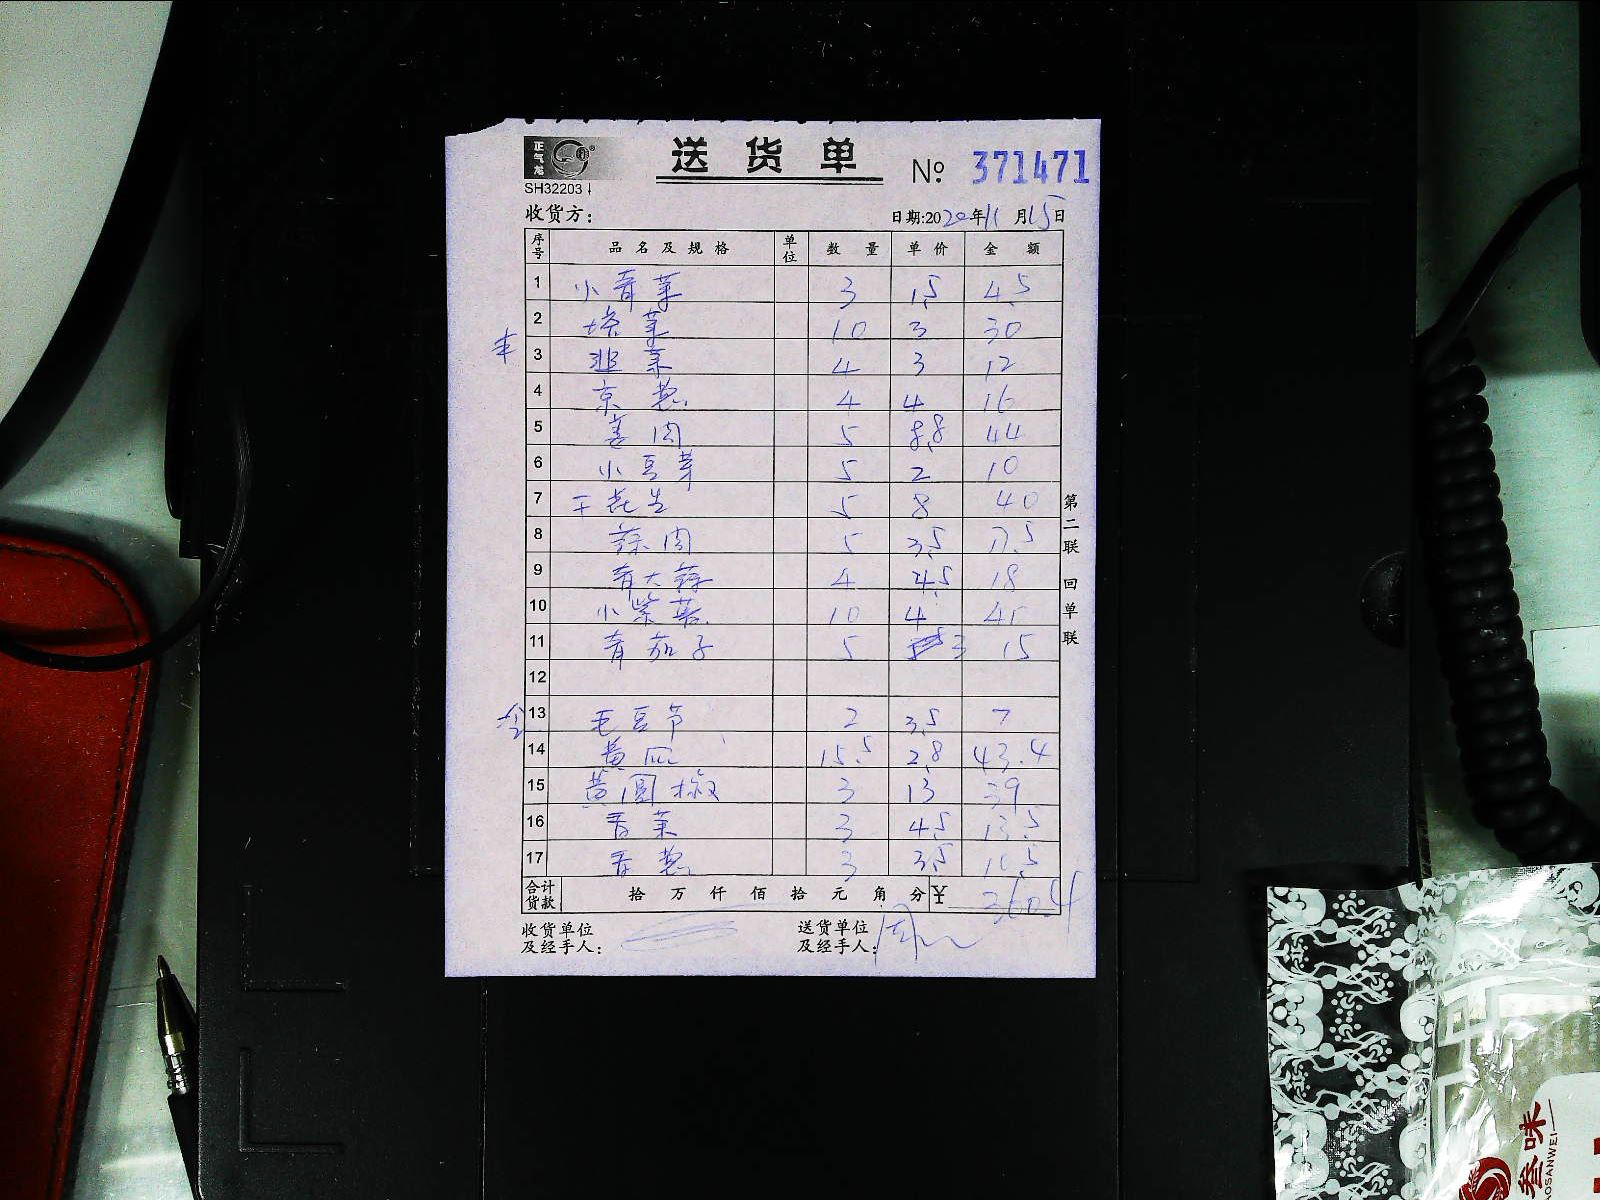 正气龙
送货单 № 371471
SH32203
收货方： 日期:2020年11月15日
序号 品名及规格 单位 数量 单价 金额
1 小青菜 3 1.5 4.5
2 塔菜 10 3 30
丰
3 韭菜 4 3 12
4 京葱 4 4 16
5 姜肉 5 8.8 44
6 小豆芽 5 2 10
7 干花生 5 8 40
8 蒜肉 5 3.5 17.5
9 青大蒜 4 4.5 18
10 小紫葱 10 4 40
11 青茄子 5 3 15
12
13 毛豆节 2 3.5 7
14 黄瓜 15.5 2.8 43.4
15 黄圆椒 3 13 39
16 香菜 3 4.5 13.5
17 香葱 3 3.5 10.5
合计货款 拾万仟佰拾元角分 ¥ 360.4
收货单位及经手人： 送货单位及经手人：周
第二联 回单联
叁味
OSANWEI